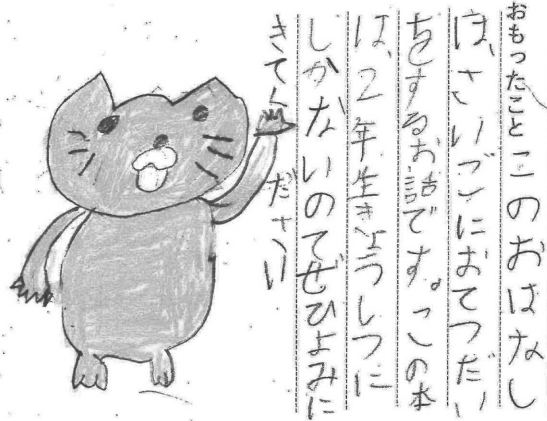 おもったこと このおはなし
は、さいごにおてつだい
をするお話です。この本
は、2年生きょうしつに
しかないのでぜひよみに
きてください